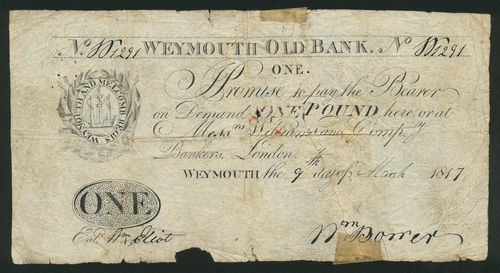 No. W1291 WEYMOUTH OLD BANK. No W1291
ONE.
I Promise to pay the Bearer
on Demand ONE POUND here, or at
Messrs Williams and Compy
Bankers, London.
WEYMOUTH the 9th day of March 1817
WEYMOUTH AND MELCOMB REGIS
ONE
Entd Wm Eliot
Wm Bower